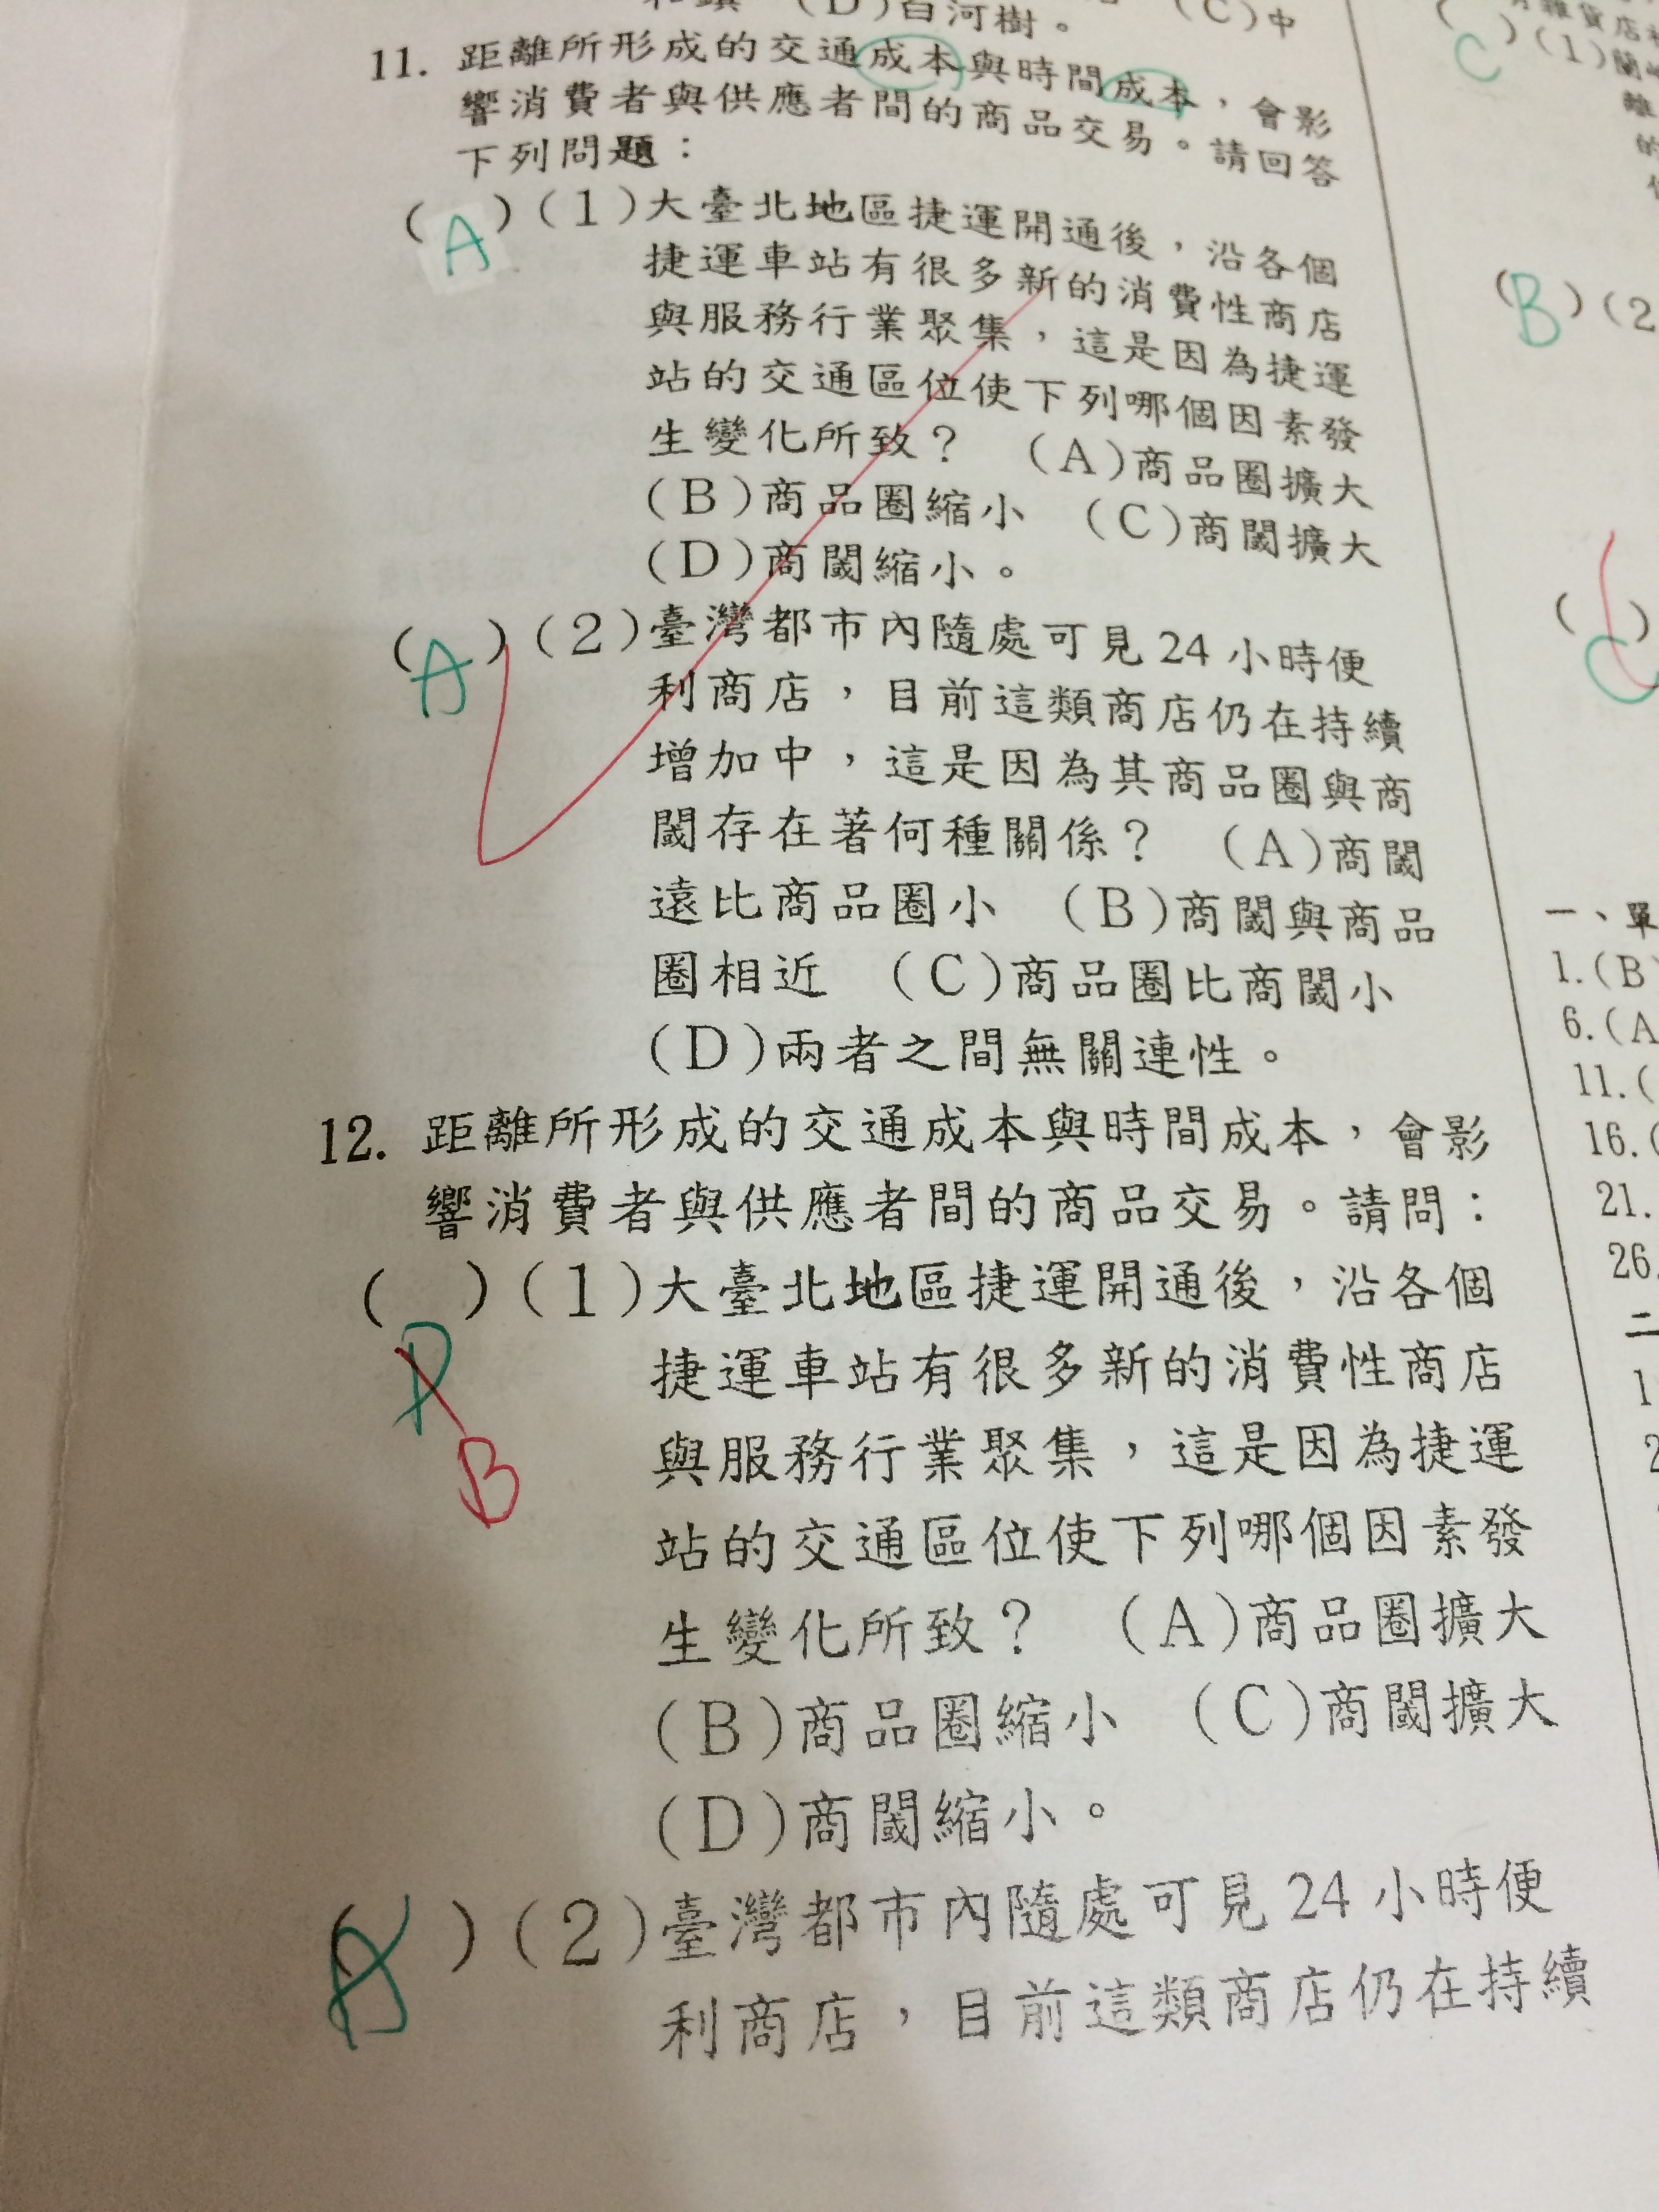 (D)白河樹。
(C)中
11. 距離所形成的交通成本與時間成本，會影
響消費者與供應者間的商品交易。請回答
下列問題：
(A)(1)大臺北地區捷運開通後，沿各個
捷運車站有很多新的消費性商店
與服務行業聚集，這是因為捷運
站的交通區位使下列哪個因素發
生變化所致？ (A)商品圈擴大
(B)商品圈縮小 (C)商閾擴大
(D)商閾縮小。
(A)(2)臺灣都市內隨處可見24小時便
利商店，目前這類商店仍在持續
增加中，這是因為其商品圈與商
閾存在著何種關係？ (A)商閾
遠比商品圈小 (B)商閾與商品
圈相近 (C)商品圈比商閾小
(D)兩者之間無關連性。
12. 距離所形成的交通成本與時間成本，會影
響消費者與供應者間的商品交易。請問：
( )(1)大臺北地區捷運開通後，沿各個
D
B
捷運車站有很多新的消費性商店
與服務行業聚集，這是因為捷運
站的交通區位使下列哪個因素發
生變化所致？ (A)商品圈擴大
(B)商品圈縮小 (C)商閾擴大
(D)商閾縮小。
(A)(2)臺灣都市內隨處可見24小時便
利商店，目前這類商店仍在持續
雜貨店
( )(1)蘭
C
離
的
(B)(2
( )
C
一、單
1.(B
6.(A
11.(
16.(
21.
26.
二
1
2